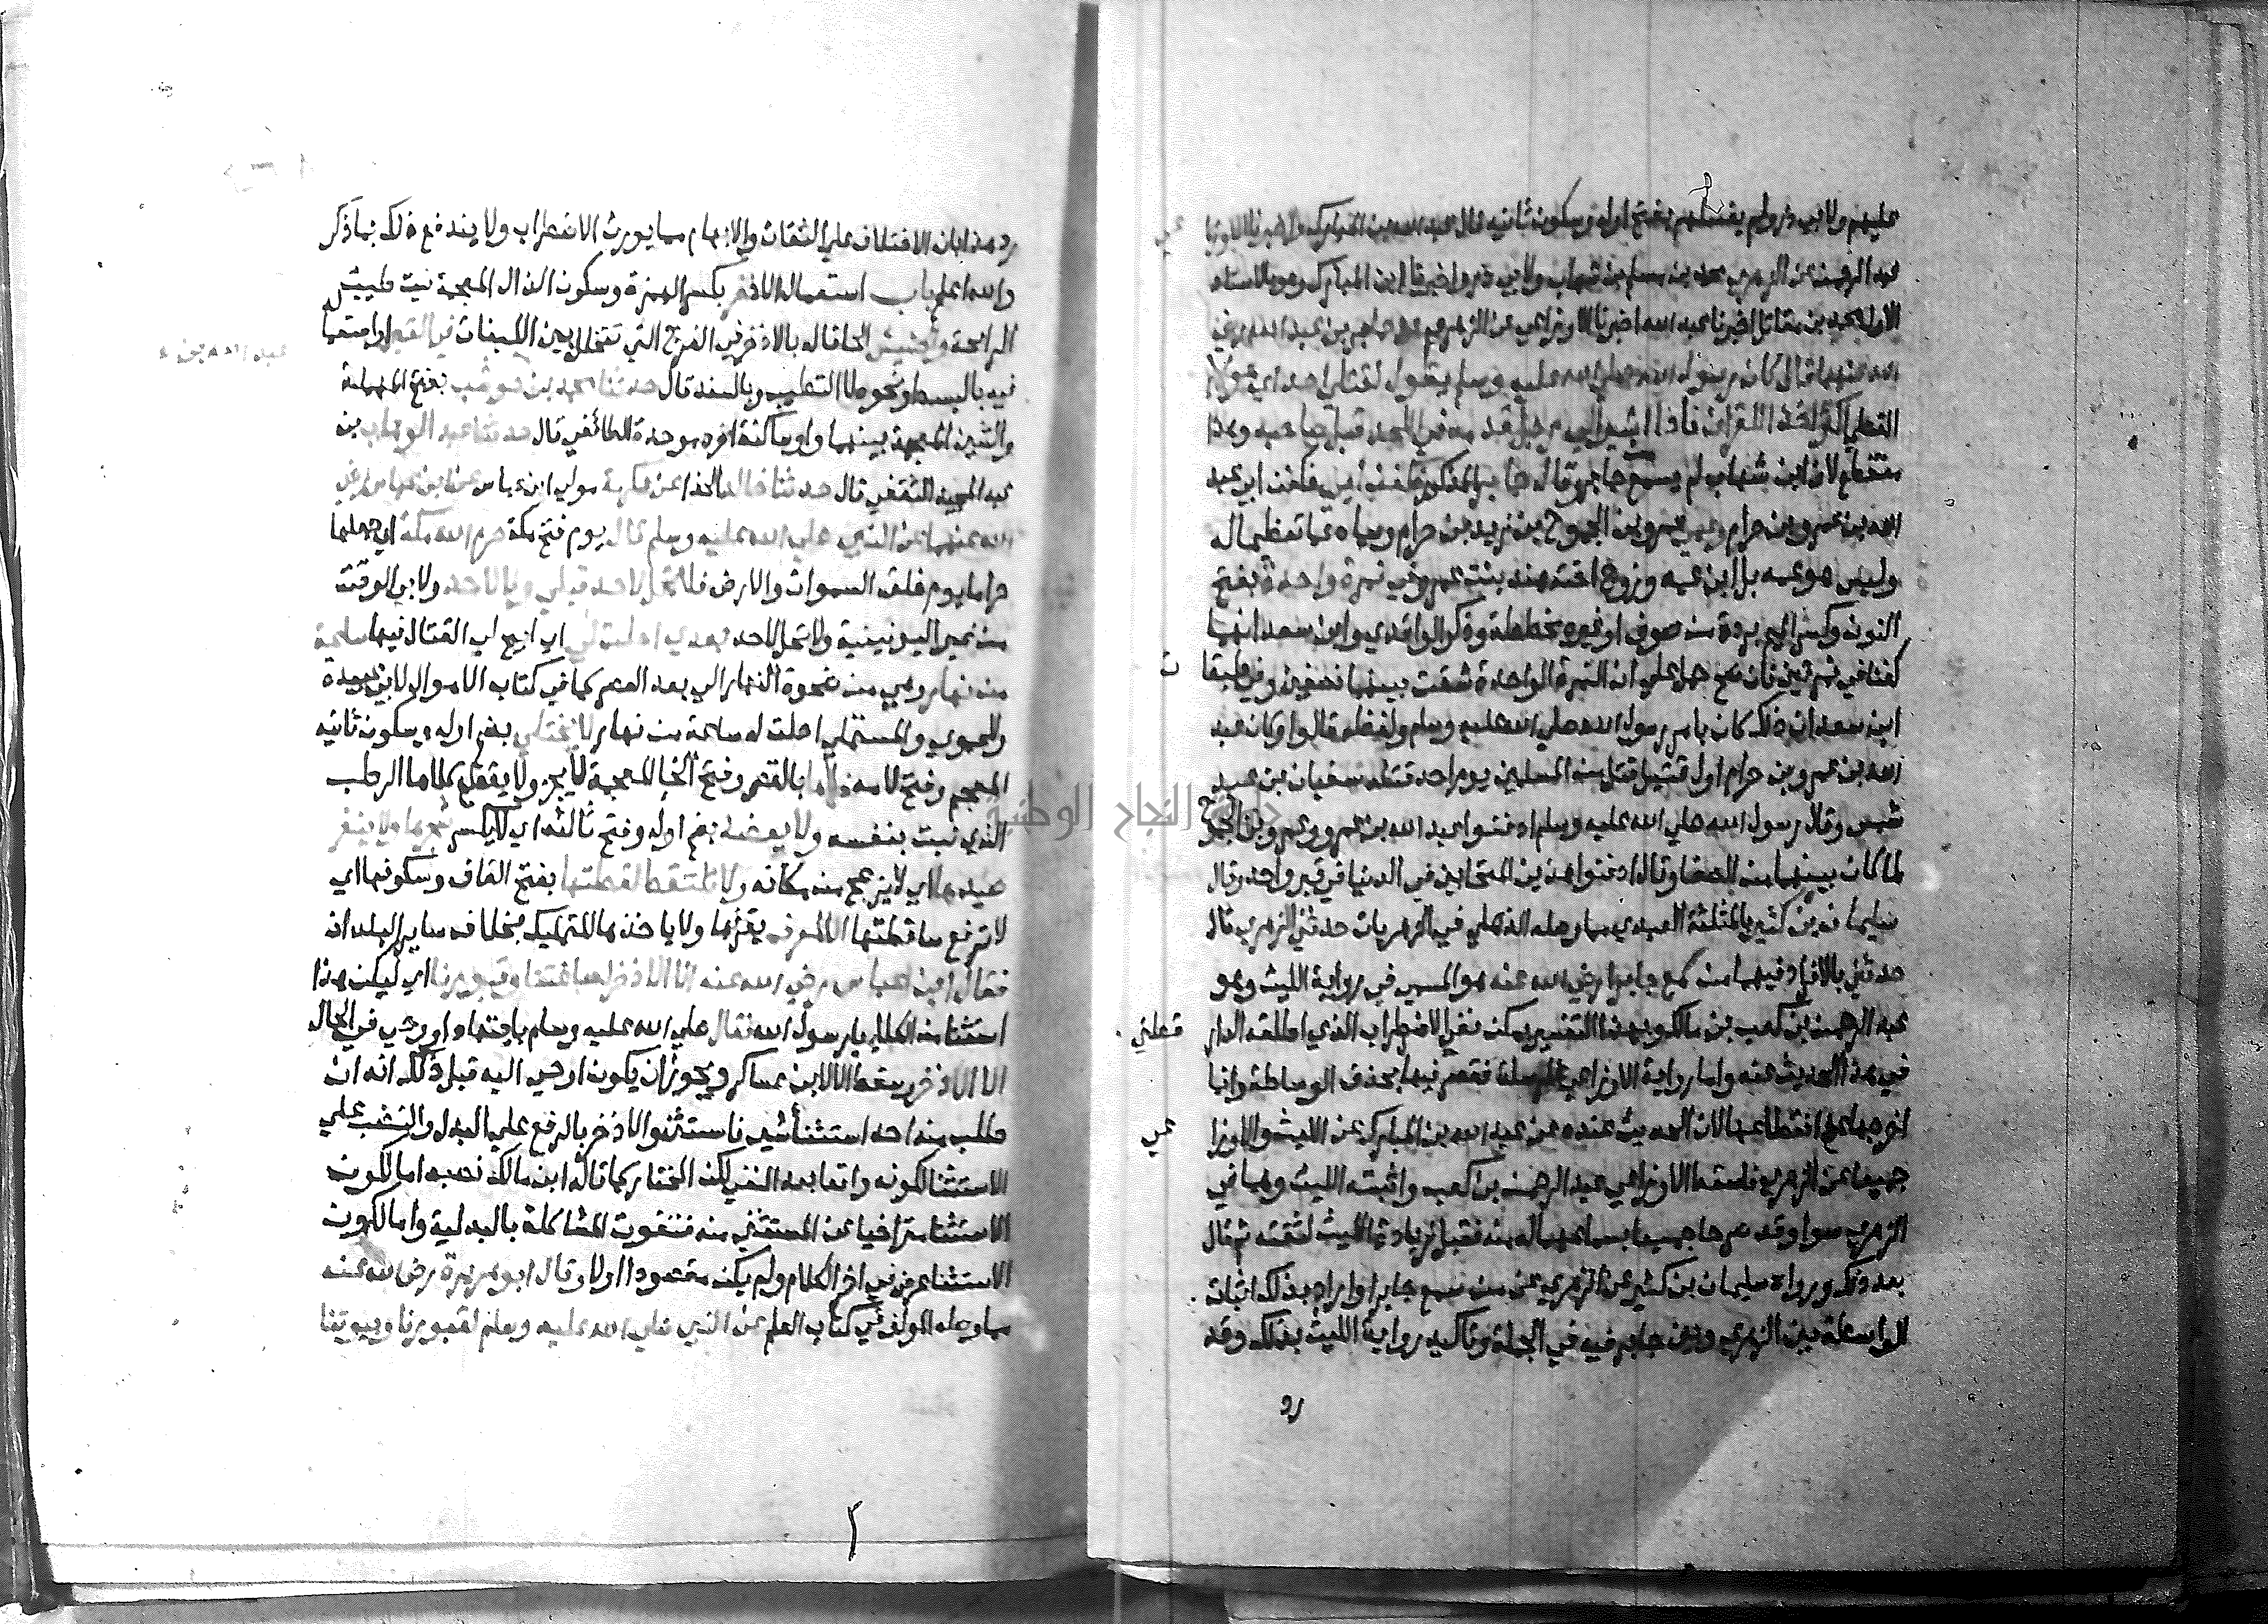 عليهم ولابي ذر ولم يغسلهم بفتح اوله وسكون ثانيه قال عبد الله بن المبارك واخبرنا الاوزا
عي
عبد الرحمن عن الزهري محمد بن مسلم بن شهاب ولابي ذر واخبرنا ابن المبارك وهو بالاسناد
الاول محمد بن مقاتل اخبرنا عبد الله اخبرنا الاوزاعي عن الزهري عن جابر بن عبد الله رضي
الله عنهما قال كان رسول الله صلي الله عليه وسلم يقول لقتلي احد اي هولاء
القتلي اكثر اخذا للقران فاذا اشير الي رجل قدمه في اللحد قبل صاحبه وهذا
منقطع لان ابن شهاب لم يسمع جابر وقال جابر المذكور فكفن ابي
الله بن عمرو بن حرام وعمي عمرو بن الجموح بن زيد بن حرام وسماه عما تعظيما له
وليس هو عمه بل ابن عمه وزوج اخته هند بنت عمرو في نمرة واحدة بفتح
النون وكسر الميم بردة من صوف او غيره مخططة وذكر الواقدي وابن سعد انهما
كفنا في نمرتين فان صح حمل علي ان النمرة الواحدة شقت بينهما نصفين وفي طبقا
ت
ابن سعد ان ذلك كان بامر رسول الله صلي الله عليه وسلم ولفظه قالوا وكان عبد
الله بن عمرو بن حرام اول قتيل قتل من المسلمين يوم احد قتله سفيان بن عبد
شمس وقال رسول الله صلي الله عليه وسلم ادفنوا عبد الله بن عمرو وعمرو بن الجموح
لما كان بينهما من الصفا وقال ادفنوا هذين المتحابين في الدنيا في قبر واحد وقال
سليمان بن كثير بالمثلثة العبدي مما وصله الذهلي في الزهريات حدثني الزهري قال
حدثني بالافراد فيهما من سمع جابرا رضي الله عنه هو المسمي في رواية الليث وهو
عبد الرحمن بن كعب بن مالك وبهذا التفسير يمكن نفي الاضطراب الذي اطلقه الدار
قطني
في هذا الحديث عنه واما رواية الاوزاعي المرسلة فقصر فيها بحذف الواسطة وانما
اخرجها مع انقطاعها لان الحديث عنده عن عبد الله بن المبارك عن الليث والاوزا
عي
جميعا عن الزهري فاسقط الاوزاعي عبد الرحمن بن كعب واثبته الليث وهما في
الزهري سوا وقد صرحا جميعا بسماعهما له منه فقبل زيادة الليث لثقته ثم قال
بعد ذلك ورواه سليمان بن كثير عن الزهري عن من سمع جابرا واراد بذلك اثبات
الواسطة بين الزهري وبين جابر فيه في الجملة وتاكيد رواية الليث بذلك وقد
رد
رد هذا بان الاختلاف علي الثقات والابهام مما يورث الاضطراب ولا يندفع ذلك بما ذكر
والله اعلم باب استعمال الاذخر بكسر الهمزة وسكون الذال المعجمة نبت طيب
الرائحة والحشيش الحاقا له بالاذخر في الفرج التي تتخلل بين اللبنات في القبر او استعما
فيه بالبسط ونحوه لا التطيب وبالسند قال حدثنا محمد بن حوشب بفتح المهملة
عبد الله بن
والشين المعجمة بينهما واو ساكنة اخره موحدة الطائفي قال حدثنا عبد الوهاب بن
عبد المجيد الثقفي قال حدثنا خالد الحذا عن عكرمة مولي ابن عباس عن ابن عباس رضي
الله عنهما عن النبي صلي الله عليه وسلم قال يوم فتح مكة حرم الله مكة اي جعلها
حراما يوم خلق السموات والارض فلم تحل لاحد قبلي ولا لاحد ولابي الوقت
من غير اليونينية ولا تحل لاحد بعدي احلت لي اي ابيح لي القتال فيها ساعة
من نهار وهي من ضحوة النهار الي بعد العصر كما في كتاب الاموال لابي عبيدة
وللحموي والمستملي احلت له ساعة من نهار لا يختلي بضم اوله وسكون ثانيه
المعجم وفتح لامه بالقصر وفتح الخا المعجمة لا يجز ولا يقطع كلاها الرطب
الذي نبت بنفسه ولا يعضد بضم اوله وفتح ثالثه اي لا يكسر شجرها ولا ينفر
صيدها اي لا يزعج من مكانه ولا تلتقط لقطتها بفتح القاف وسكونها اي
لا ترفع ساقطتها الا لمعرف يعرفها ولا ياخذها للتمليك بخلاف ساير البلدان
فقال العباس رضي الله عنه الا الاذخر لصاغتنا وقبورنا اي ليكن هذا
استثنا من الكلا يا رسول الله فقال صلي الله عليه وسلم باجتهاد او وحي في الحال
الا الاذخر وسقط الا لابن عساكر ويجوز ان يكون اوحي اليه قبل ذلك انه ان
طلب منه احد استثنا شي فاستثنوا الاذخر بالرفع علي البدل والنصب علي
الاستثنا لكونه واقعا بعد النفي لكن المختار كما قاله ابن مالك نصبه اما لكون
الاستثنا متراخيا عن المستثني منه فتفوت المشاكلة بالبدلية واما لكون
الاستثنا عرض في اخر الكلام ولم يكن مقصودا اولا وقال ابو هريرة رضي الله عنه
مما وصله المولف في كتاب العلم عن النبي صلي الله عليه وسلم لقبورنا وبيوتنا
جامعة النجاح الوطنية